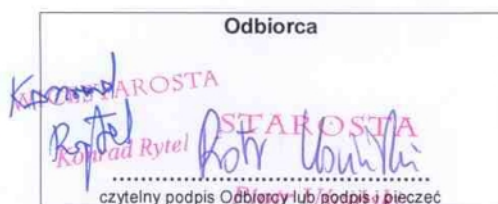 Odbiorca
WICESTAROSTA
Konrad Rytel
Konrad Rytel
STAROSTA
Piotr
czytelny podpis Odbiorcy lub podpis i pieczęć